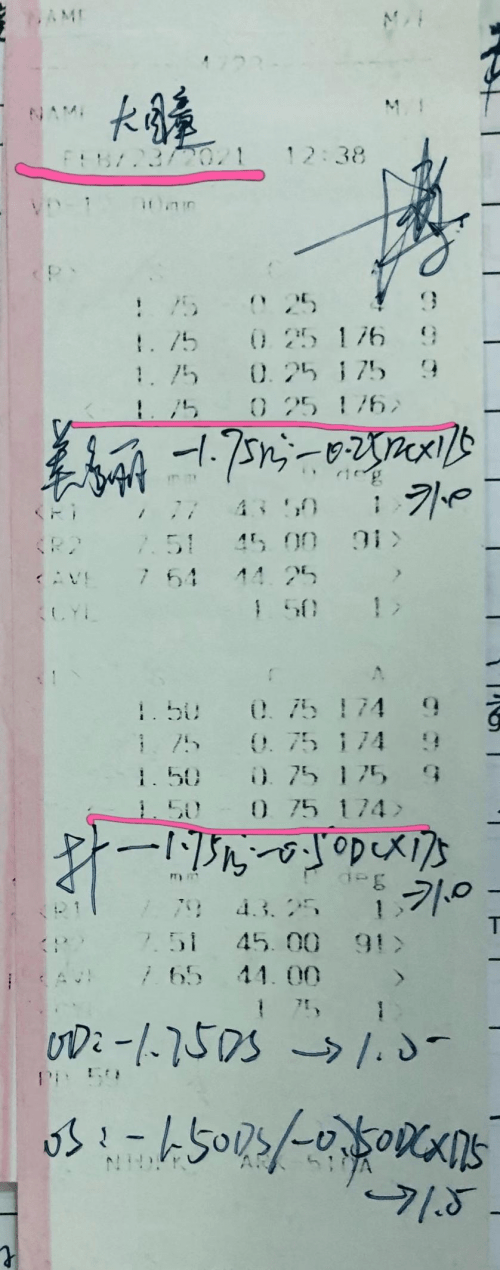 NAME M/F
NAME M/F
大瞳
FEB/23/2021 12:38
VD=12.00mm
<R> S C
1.75 0.25 4 9
1.75 0.25 176 9
1.75 0.25 175 9
< 1.75 0.25 176>
-1.75DS -0.25DC×175
→1.0
mm D deg
<R1 7.77 43.50 1>
<R2 7.51 45.00 91>
<AVE 7.64 44.25 >
<CYL 1.50 1>
<L> S C A
1.50 0.75 174 9
1.75 0.75 174 9
1.50 0.75 175 9
< 1.50 0.75 174>
-1.75DS -0.50DC×175
→1.0
mm D deg
<R1 7.79 43.25 1>
<R2 7.51 45.00 91>
<AVE 7.65 44.00 >
<CYL 1.75 1>
OD: -1.75DS → 1.0-
PD 59
OS: -1.50DS/-0.50DC×175
NIDEK ARK-510A
→1.0